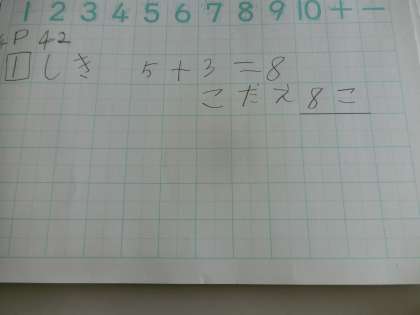 1 2 3 4 5 6 7 8 9 10 + −
P 42
1 しき 5+3=8
こたえ 8こ